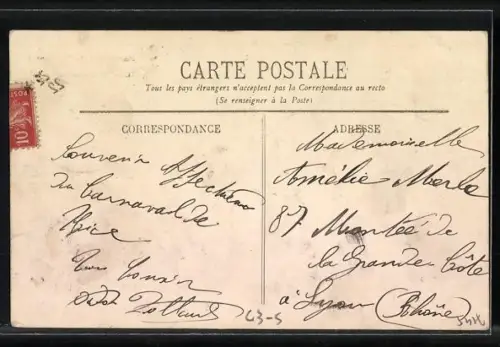 CARTE POSTALE
Tous les pays étrangers n'acceptent pas la Correspondance au recto
(Se renseigner à la Poste)
CORRESPONDANCE
ADRESSE
Souvenir Affectueux
du Carnaval de
Nice
Ton Cousin
Mademoiselle
Amélie Merle
87 Montée de
la Grande Côte
à Lyon (Rhône)
10
POST